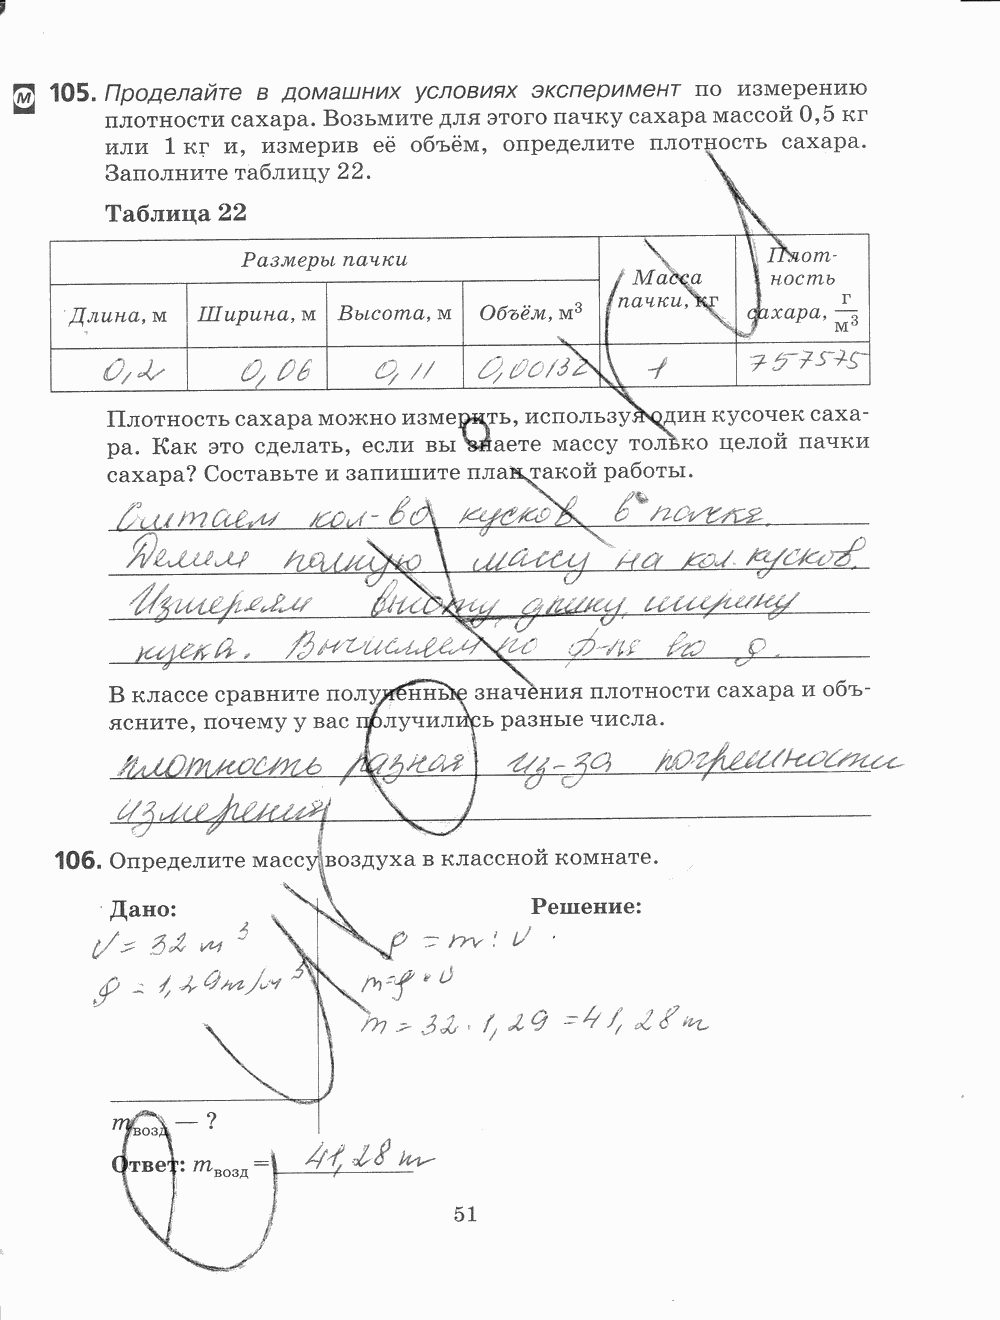 М 105. Проделайте в домашних условиях эксперимент по измерению
плотности сахара. Возьмите для этого пачку сахара массой 0,5 кг
или 1 кг и, измерив её объём, определите плотность сахара.
Заполните таблицу 22.
Таблица 22
Размеры пачки
Масса пачки, кг
Плотность сахара, г/м³
Длина, м Ширина, м Высота, м Объём, м³
0,2 0,06 0,11 0,00132 1 757575
Плотность сахара можно измерить, используя один кусочек саха-
ра. Как это сделать, если вы знаете массу только целой пачки
сахара? Составьте и запишите план такой работы.
Считаем кол-во кусков в пачке.
Делим полную массу на кол. кусков.
Измеряем высоту, длину, ширину
куска. Вычисляем по ф-ле
В классе сравните полученные значения плотности сахара и объ-
ясните, почему у вас получились разные числа.
плотность разная из-за погрешности
измерения
106. Определите массу воздуха в классной комнате.
Дано: Решение:
V = 32 м³ ρ = m : V
ρ = 1,29 т/м³ m = ρ · V
m = 32 · 1,29 = 41,28 т
mвозд — ?
Ответ: mвозд = 41,28 т
51